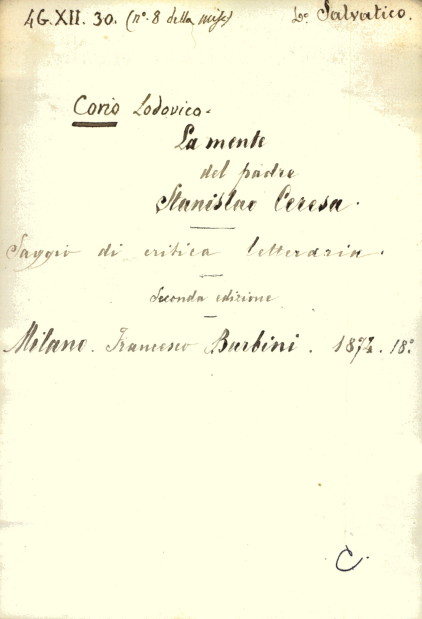 4G.XII.30. (nº. 8 della misc) Lº Salvatico.
Corio Lodovico.
La mente
del padre
Stanislao Ceresa.
Saggio di critica letteraria.
Seconda edizione
Milano. Francesco Barbini. 1872. 18º
C.